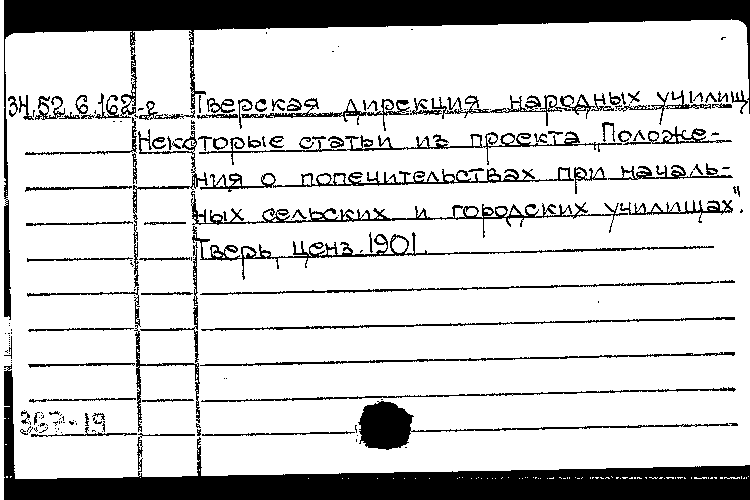 34.52.6.162-г Тверская дирекция народных училищ
Некоторые статьи из проекта „Положе-
ния о попечительствах при началь-
ных сельских и городских училищах".
Тверь, ценз. 1901.
367-19